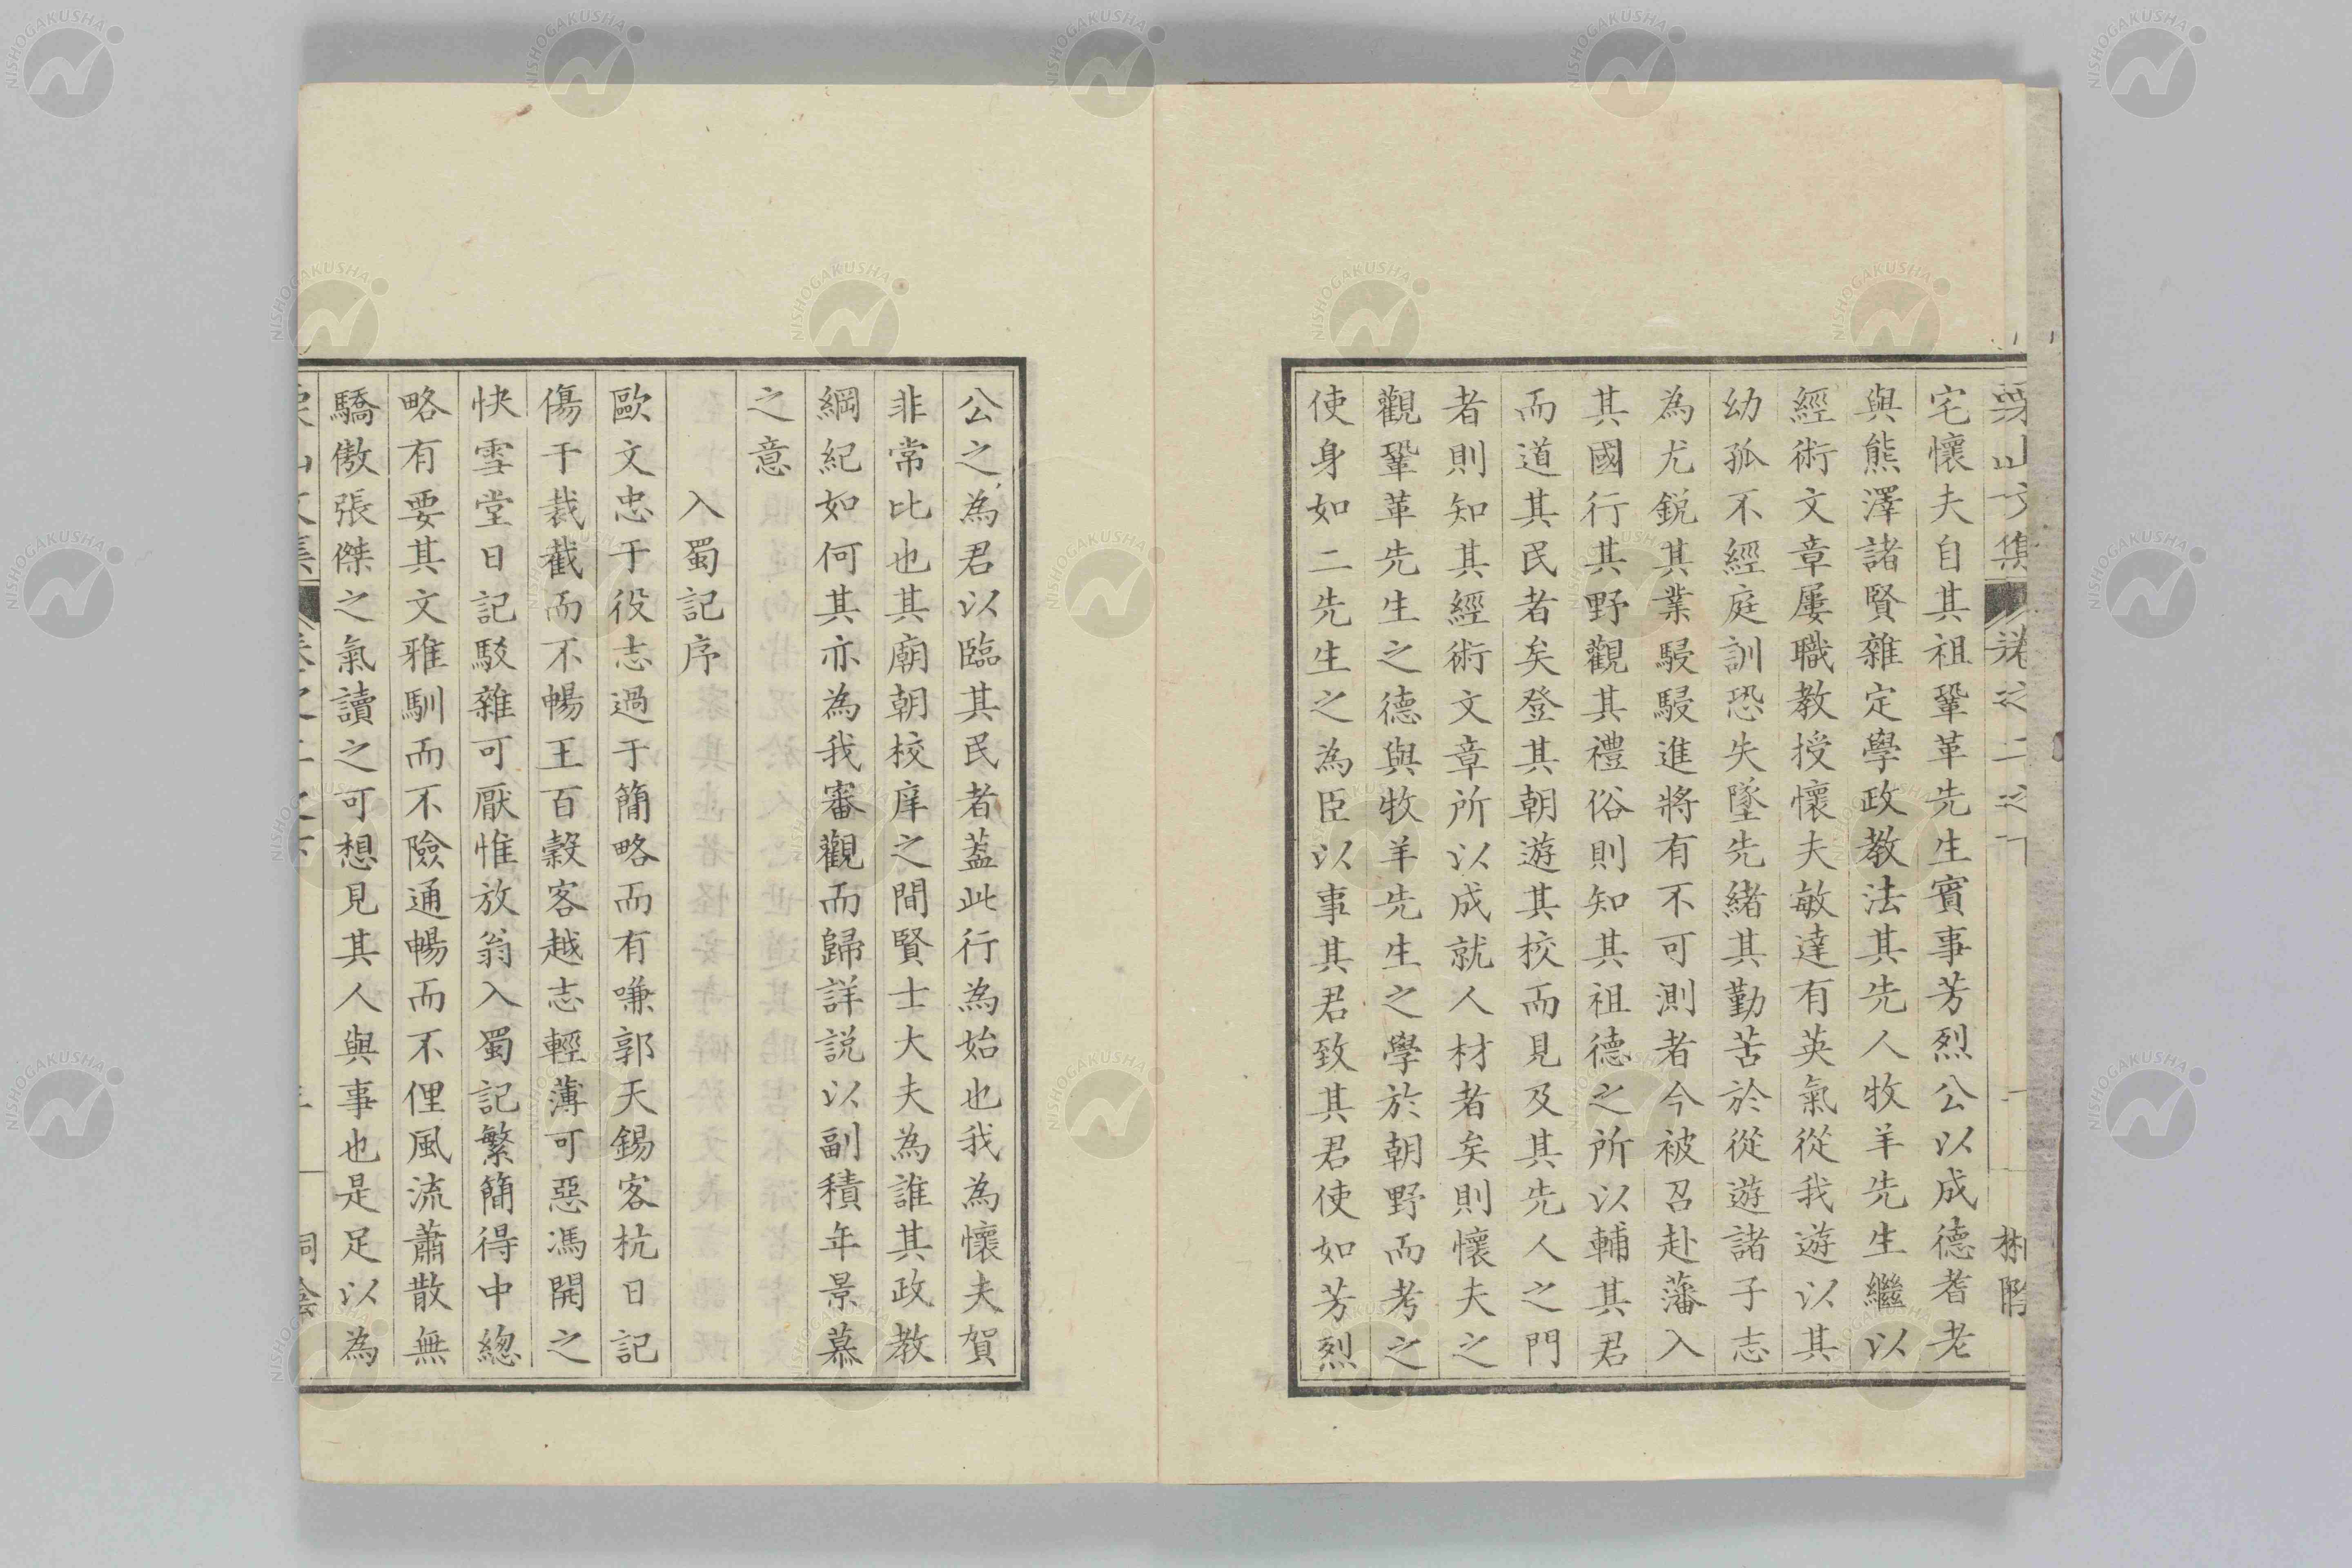 宅懷夫自其祖鞏革先生賓事芳烈公以成德耆老
與熊澤諸賢雜定學政教法其先人牧羊先生繼以
經術文章屢職教授懷夫敏達有英氣從我遊以其
幼孤不經庭訓恐失墜先緒其勤苦於從遊諸子志
為尤銳其業駸駸進將有不可測者今被召赴藩入
其國行其野觀其禮俗則知其祖德之所以輔其君
而道其民者矣登其朝遊其校而見及其先人之門
者則知其經術文章所以成就人材者矣則懷夫之
觀鞏革先生之德與牧羊先生之學於朝野而考之
使身如二先生之為臣以事其君致其君使如芳烈
公之為君以臨其民者蓋此行為始也我為懷夫賀
非常比也其廟朝校庠之間賢士大夫為誰其政教
綱紀如何其亦為我審觀而歸詳説以副積年景慕
之意
入蜀記序
歐文忠于役志過于簡略而有嗛郭天錫客杭日記
傷于裁截而不暢王百穀客越志輕薄可惡馮開之
快雪堂日記駁雜可厭惟放翁入蜀記繁簡得中緫
略有要其文雅馴而不險通暢而不俚風流蕭散無
驕傲張傑之氣讀之可想見其人與事也是足以為